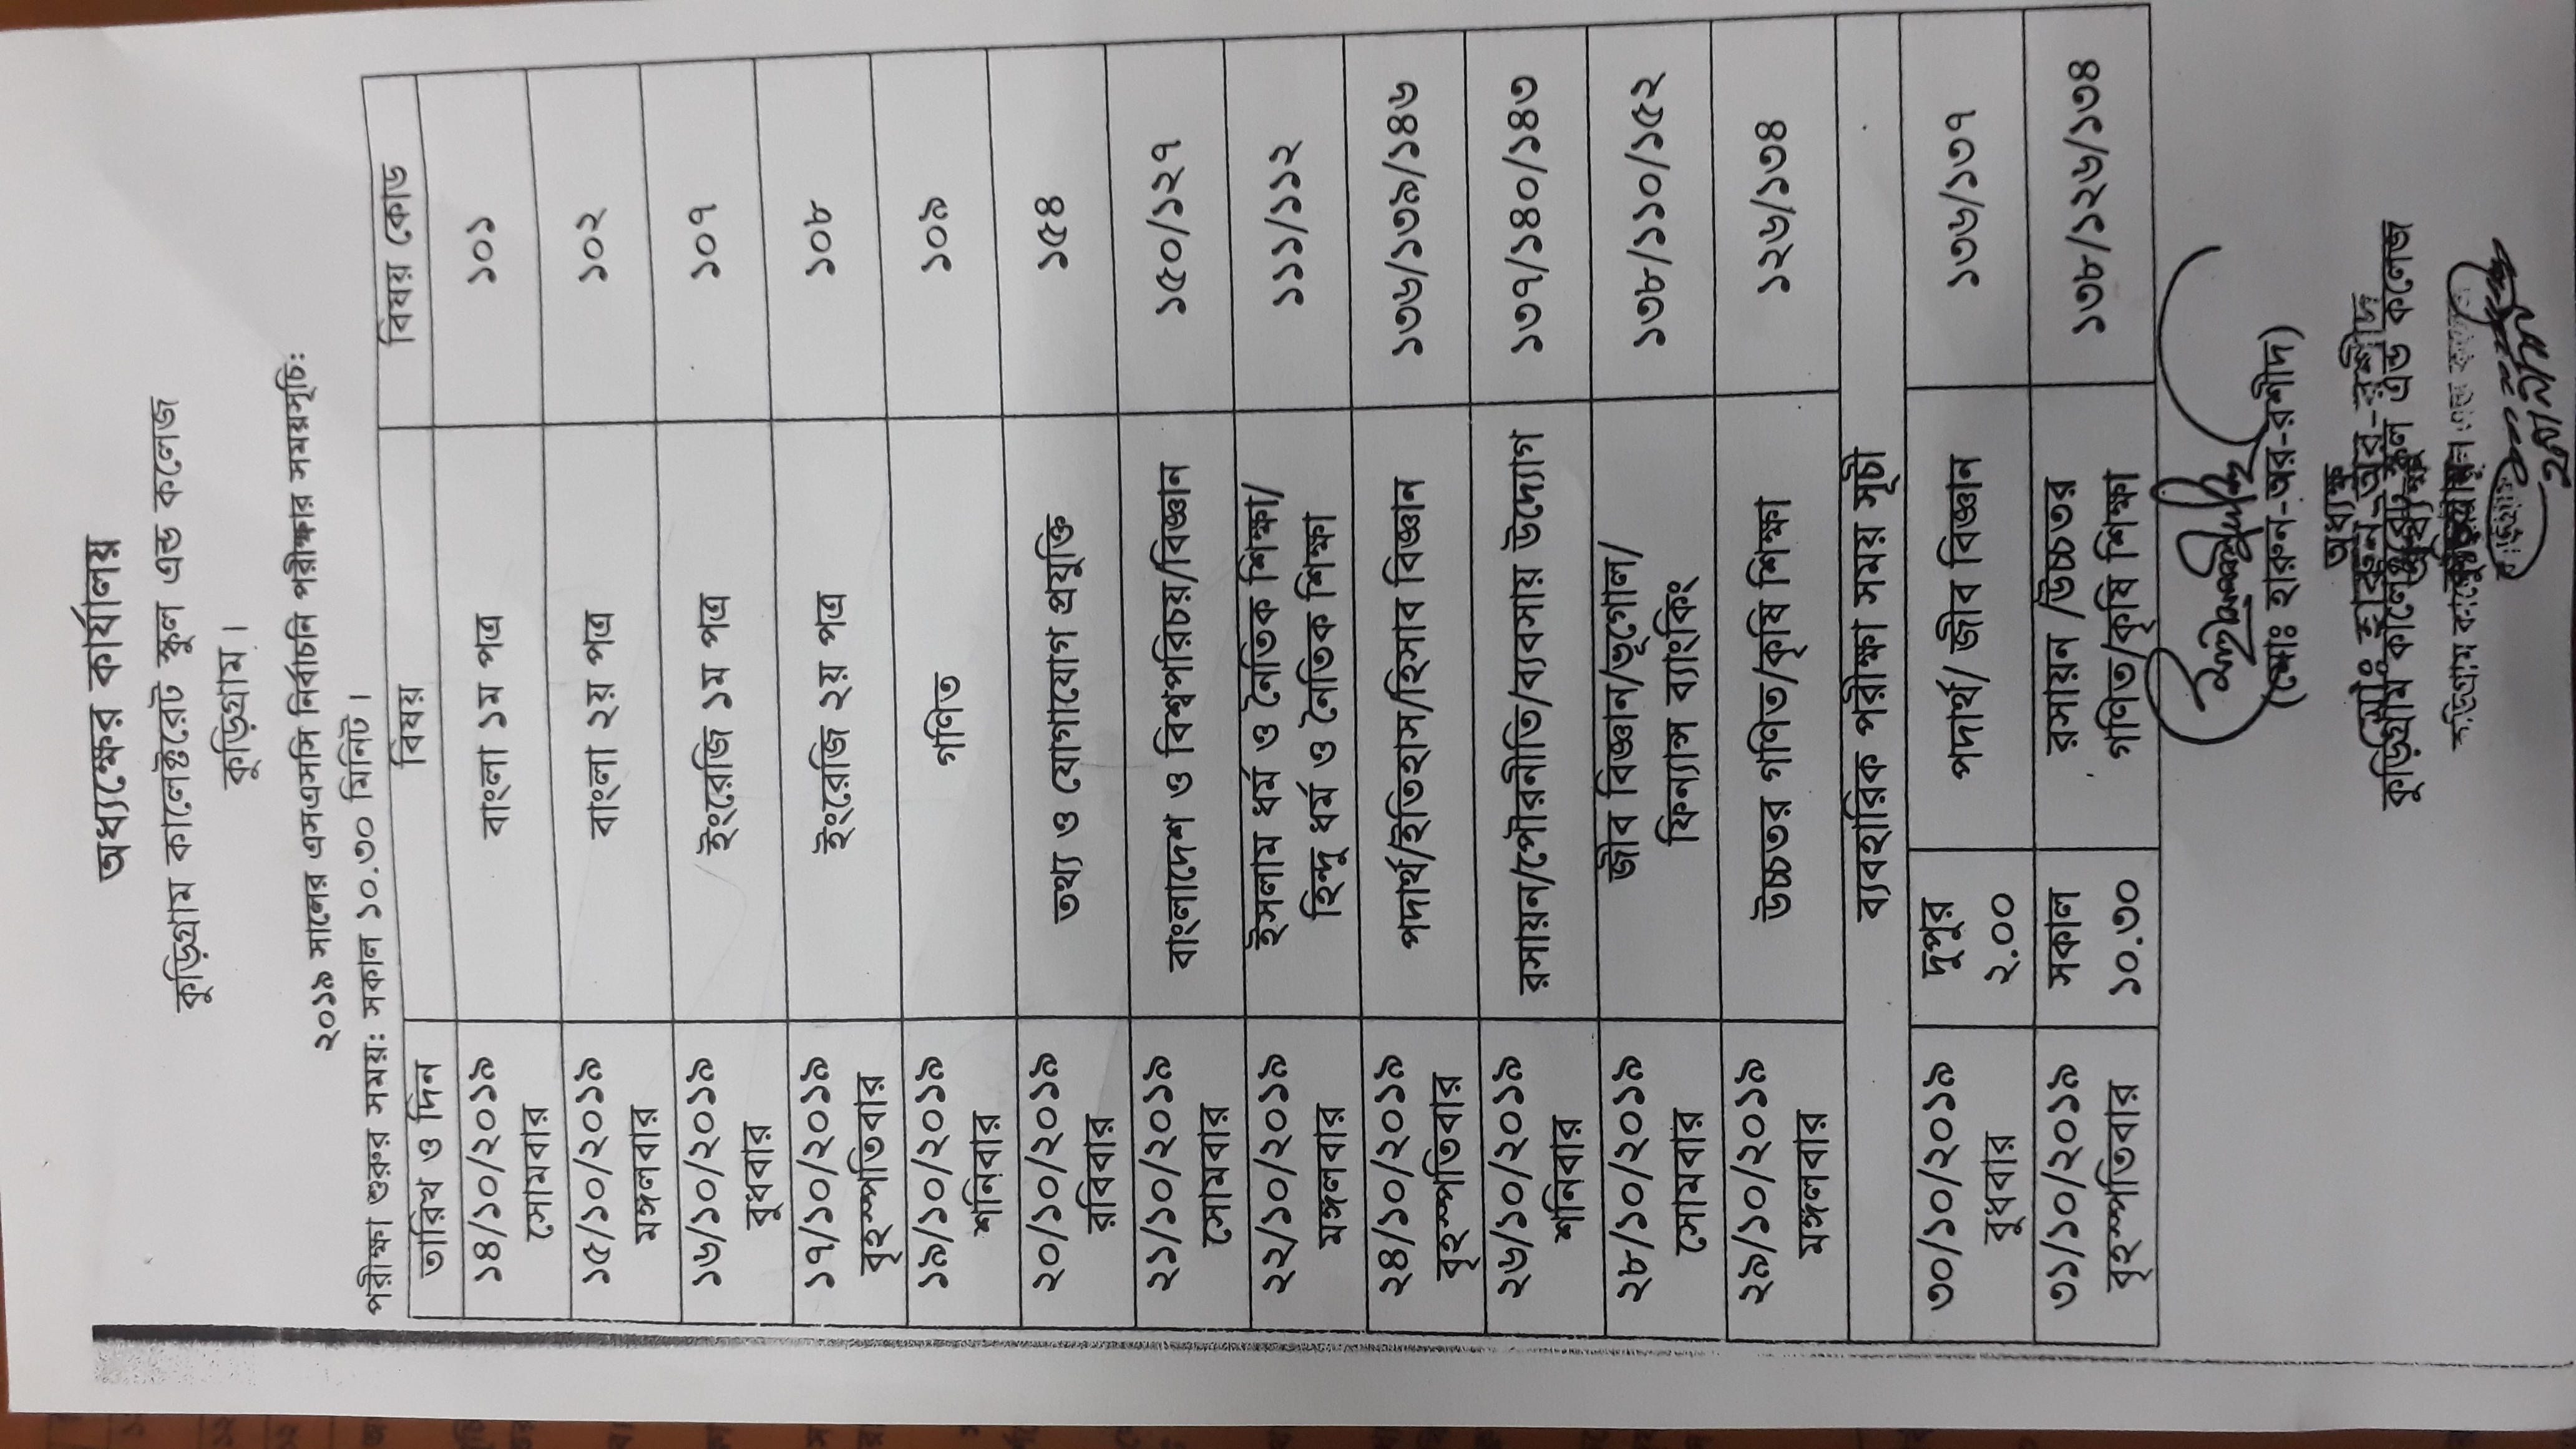 অধ্যক্ষের কার্যালয়
কুড়িগ্রাম কালেক্টরেট স্কুল এন্ড কলেজ
কুড়িগ্রাম।
২০১৯ সালের এসএসসি নির্বাচনি পরীক্ষার সময়সূচি:
পরীক্ষা শুরুর সময়: সকাল ১০.৩০ মিনিট।
তারিখ ও দিন বিষয় বিষয় কোড
১৪/১০/২০১৯ বাংলা ১ম পত্র ১০১
সোমবার
১৫/১০/২০১৯ বাংলা ২য় পত্র ১০২
মঙ্গলবার
১৬/১০/২০১৯ ইংরেজি ১ম পত্র ১০৭
বুধবার
১৭/১০/২০১৯ ইংরেজি ২য় পত্র ১০৮
বৃহস্পতিবার
১৯/১০/২০১৯ গণিত ১০৯
শনিবার
২০/১০/২০১৯ তথ্য ও যোগাযোগ প্রযুক্তি ১৫৪
রবিবার
২১/১০/২০১৯ বাংলাদেশ ও বিশ্বপরিচয়/বিজ্ঞান ১৫০/১২৭
সোমবার
২২/১০/২০১৯ ইসলাম ধর্ম ও নৈতিক শিক্ষা/ ১১১/১১২
মঙ্গলবার হিন্দু ধর্ম ও নৈতিক শিক্ষা
২৪/১০/২০১৯ পদার্থ/ইতিহাস/হিসাব বিজ্ঞান ১৩৬/১৩৯/১৪৬
বৃহস্পতিবার
২৬/১০/২০১৯ রসায়ন/পৌরনীতি/ব্যবসায় উদ্যোগ ১৩৭/১৪০/১৪৩
শনিবার
২৮/১০/২০১৯ জীব বিজ্ঞান/ভূগোল/ ১৩৮/১১০/১৫২
সোমবার ফিন্যান্স ব্যাংকিং
২৯/১০/২০১৯ উচ্চতর গণিত/কৃষি শিক্ষা ১২৬/১৩৪
মঙ্গলবার
ব্যবহারিক পরীক্ষা সময় সূচী
৩০/১০/২০১৯ দুপুর পদার্থ/ জীব বিজ্ঞান ১৩৬/১৩৭
বুধবার ২.০০
৩১/১০/২০১৯ সকাল রসায়ন /উচ্চতর ১৩৮/১২৬/১৩৪
বৃহস্পতিবার ১০.৩০ গণিত/কৃষি শিক্ষা
(মোঃ হারুন-অর-রশীদ)
অধ্যক্ষ
মোঃ হারুন-অর-রশীদ
কুড়িগ্রাম কালেক্টরেট স্কুল এন্ড কলেজ